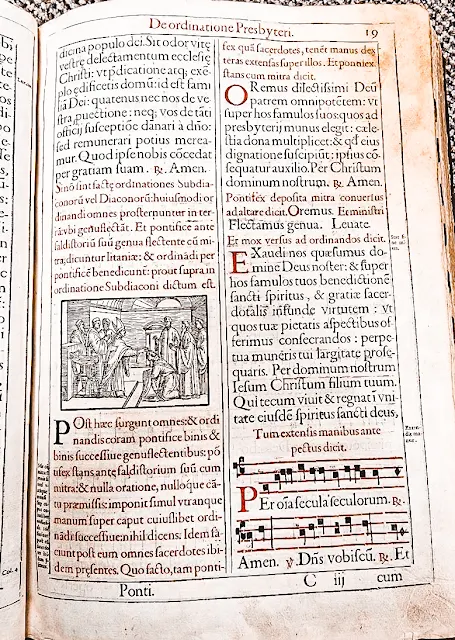 De ordinatione Presbyteri. 19
dicina populo dei. Sit odor vitę
vestrę delectamentum ecclesię
Christi: vt pdicatione atq; exē-
plo ędificetis domū: id est fami
liā Dei: quatenus nec nos de ve-
stra, puectione: neq; vos de tāti
officij susceptiōe danari à dño:
sed remunerari potius merea-
mur. Quod ipse nobis cōcedat
per gratiam suam. ℞. Amen.
Sinō sint factę ordinationes Subdia-
conorū vel Diaconorū: huiusmodi or
dinandi omnes prosternuntur in ter-
ra: vbi genuflectāt. Et pontifice ante
faldistoriū suū genua flectente cū mi-
tra, dicuntur litaniæ: & ordinādi per
pontificē benedicunt: prout supra in
ordinatione Subdiaconi dictum est.
POst hæc surgunt omnes: & ordi
nandis coram pontifice binis &
binis successiue genuflectentibus: pō
tifex stans ante faldistorium suū cum
mitra: & nulla oratione, nulloque cā-
tu præmissis: imponit simul vtranque
manum super caput cuiuslibet ordi-
nādi successiue: nihil dicens. Idem fa-
ciunt post eum omnes sacerdotes ibi-
dem pręsentes. Quo facto, tam ponti-
Ponti.
fex quā sacerdotes, tenēt manus dex
teras extensas super illos. Et pontifex
stans cum mitra dicit.
ORemus dilectissimi Deū
patrem omnipotētem: vt
super hos famulos suos: quos ad
presbyterij munus elegit: cæle-
stia dona multiplicet: & qđ eius
dignatione suscipiūt: ipsius cō-
sequatur auxilio. Per Christum
dominum nostrum. ℞. Amen.
Pontifex deposita mitra conuersus
ad altare dicit. Oremus. Et ministri
Flectamus genua. Leuate.
Et mox versus ad ordinandos dicit.
EXaudi nos quæsumus do-
mine Deus noster: & super
hos famulos tuos benedictionē
sancti spiritus, & gratiæ sacer-
dotalis infunde virtutem: vt
quos tuæ pietatis aspectibus of-
ferimus consecrandos: perpe-
tua muneris tui largitate prose-
quaris. Per dominum nostrum
Iesum Christum filium tuum.
Qui tecum viuit & regnat ī vni-
tate eiusdē spiritus sancti deus,
Tum extensis manibus ante
pectus dicit.
Per oīa secula seculorum. ℞.
Amen. ℣. Dñs vobiscū. ℞. Et
C iij cum